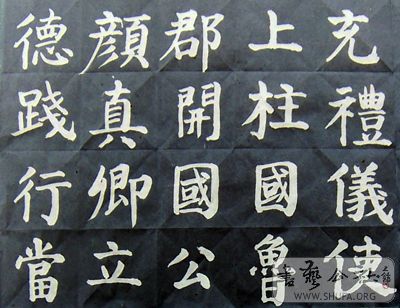 充禮儀使
上柱國魯
郡開國公
顔真卿立
德踐行當
WWW.SHUFA.ORG